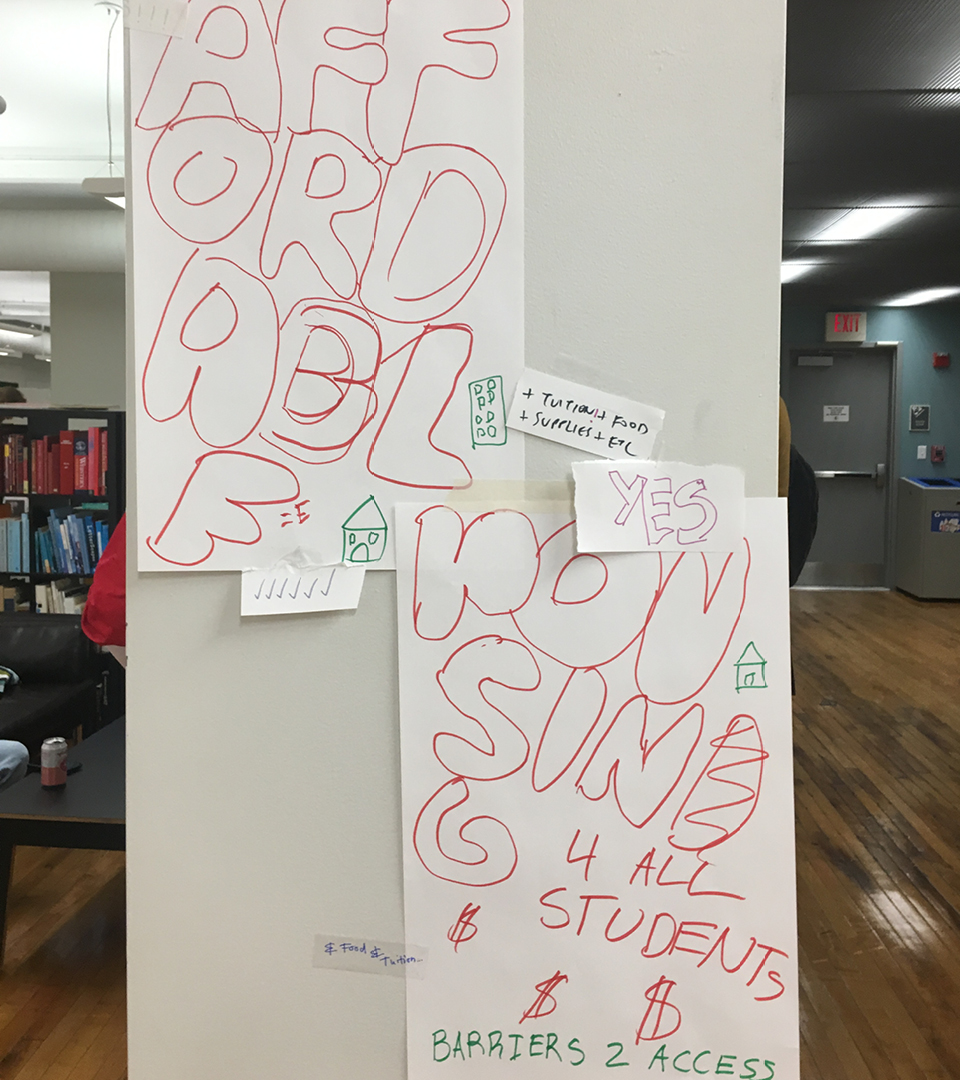 AFF
ORD
ABL
E =E
+ TUITION!+ FOOD
+ SUPPLIES + ETC
YES
✓✓✓✓✓✓
HOU
SIN
G
4 ALL
STUDENTS
$
$ $
& Food &
Tuition...
BARRIERS 2 ACCESS
EXIT